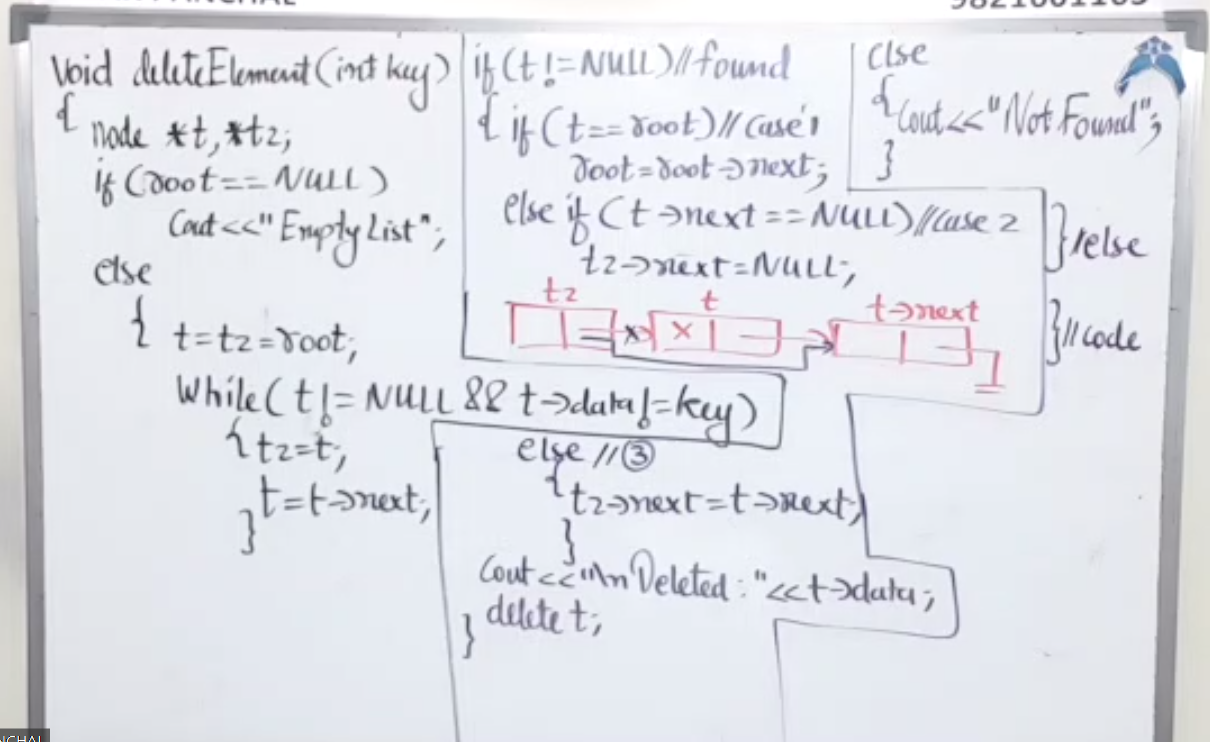 9821601163
void deleteElement(int key)
{
node *t,*t2;
if(root==NULL)
cout<<"Empty List";
else
{
t=t2=root;
while(t!=NULL && t->data!=key)
{t2=t;
t=t->next;
}
if(t!=NULL)//found
{ if(t==root)//Case 1
root=root->next;
else if(t->next==NULL)//Case 2
t2->next=NULL;
t2 t t->next
x x
else //③
{t2->next=t->next;
}
cout<<"\n Deleted: "<<t->data;
delete t;
}
else
{cout<<"Not Found";
}
}//else
}//code